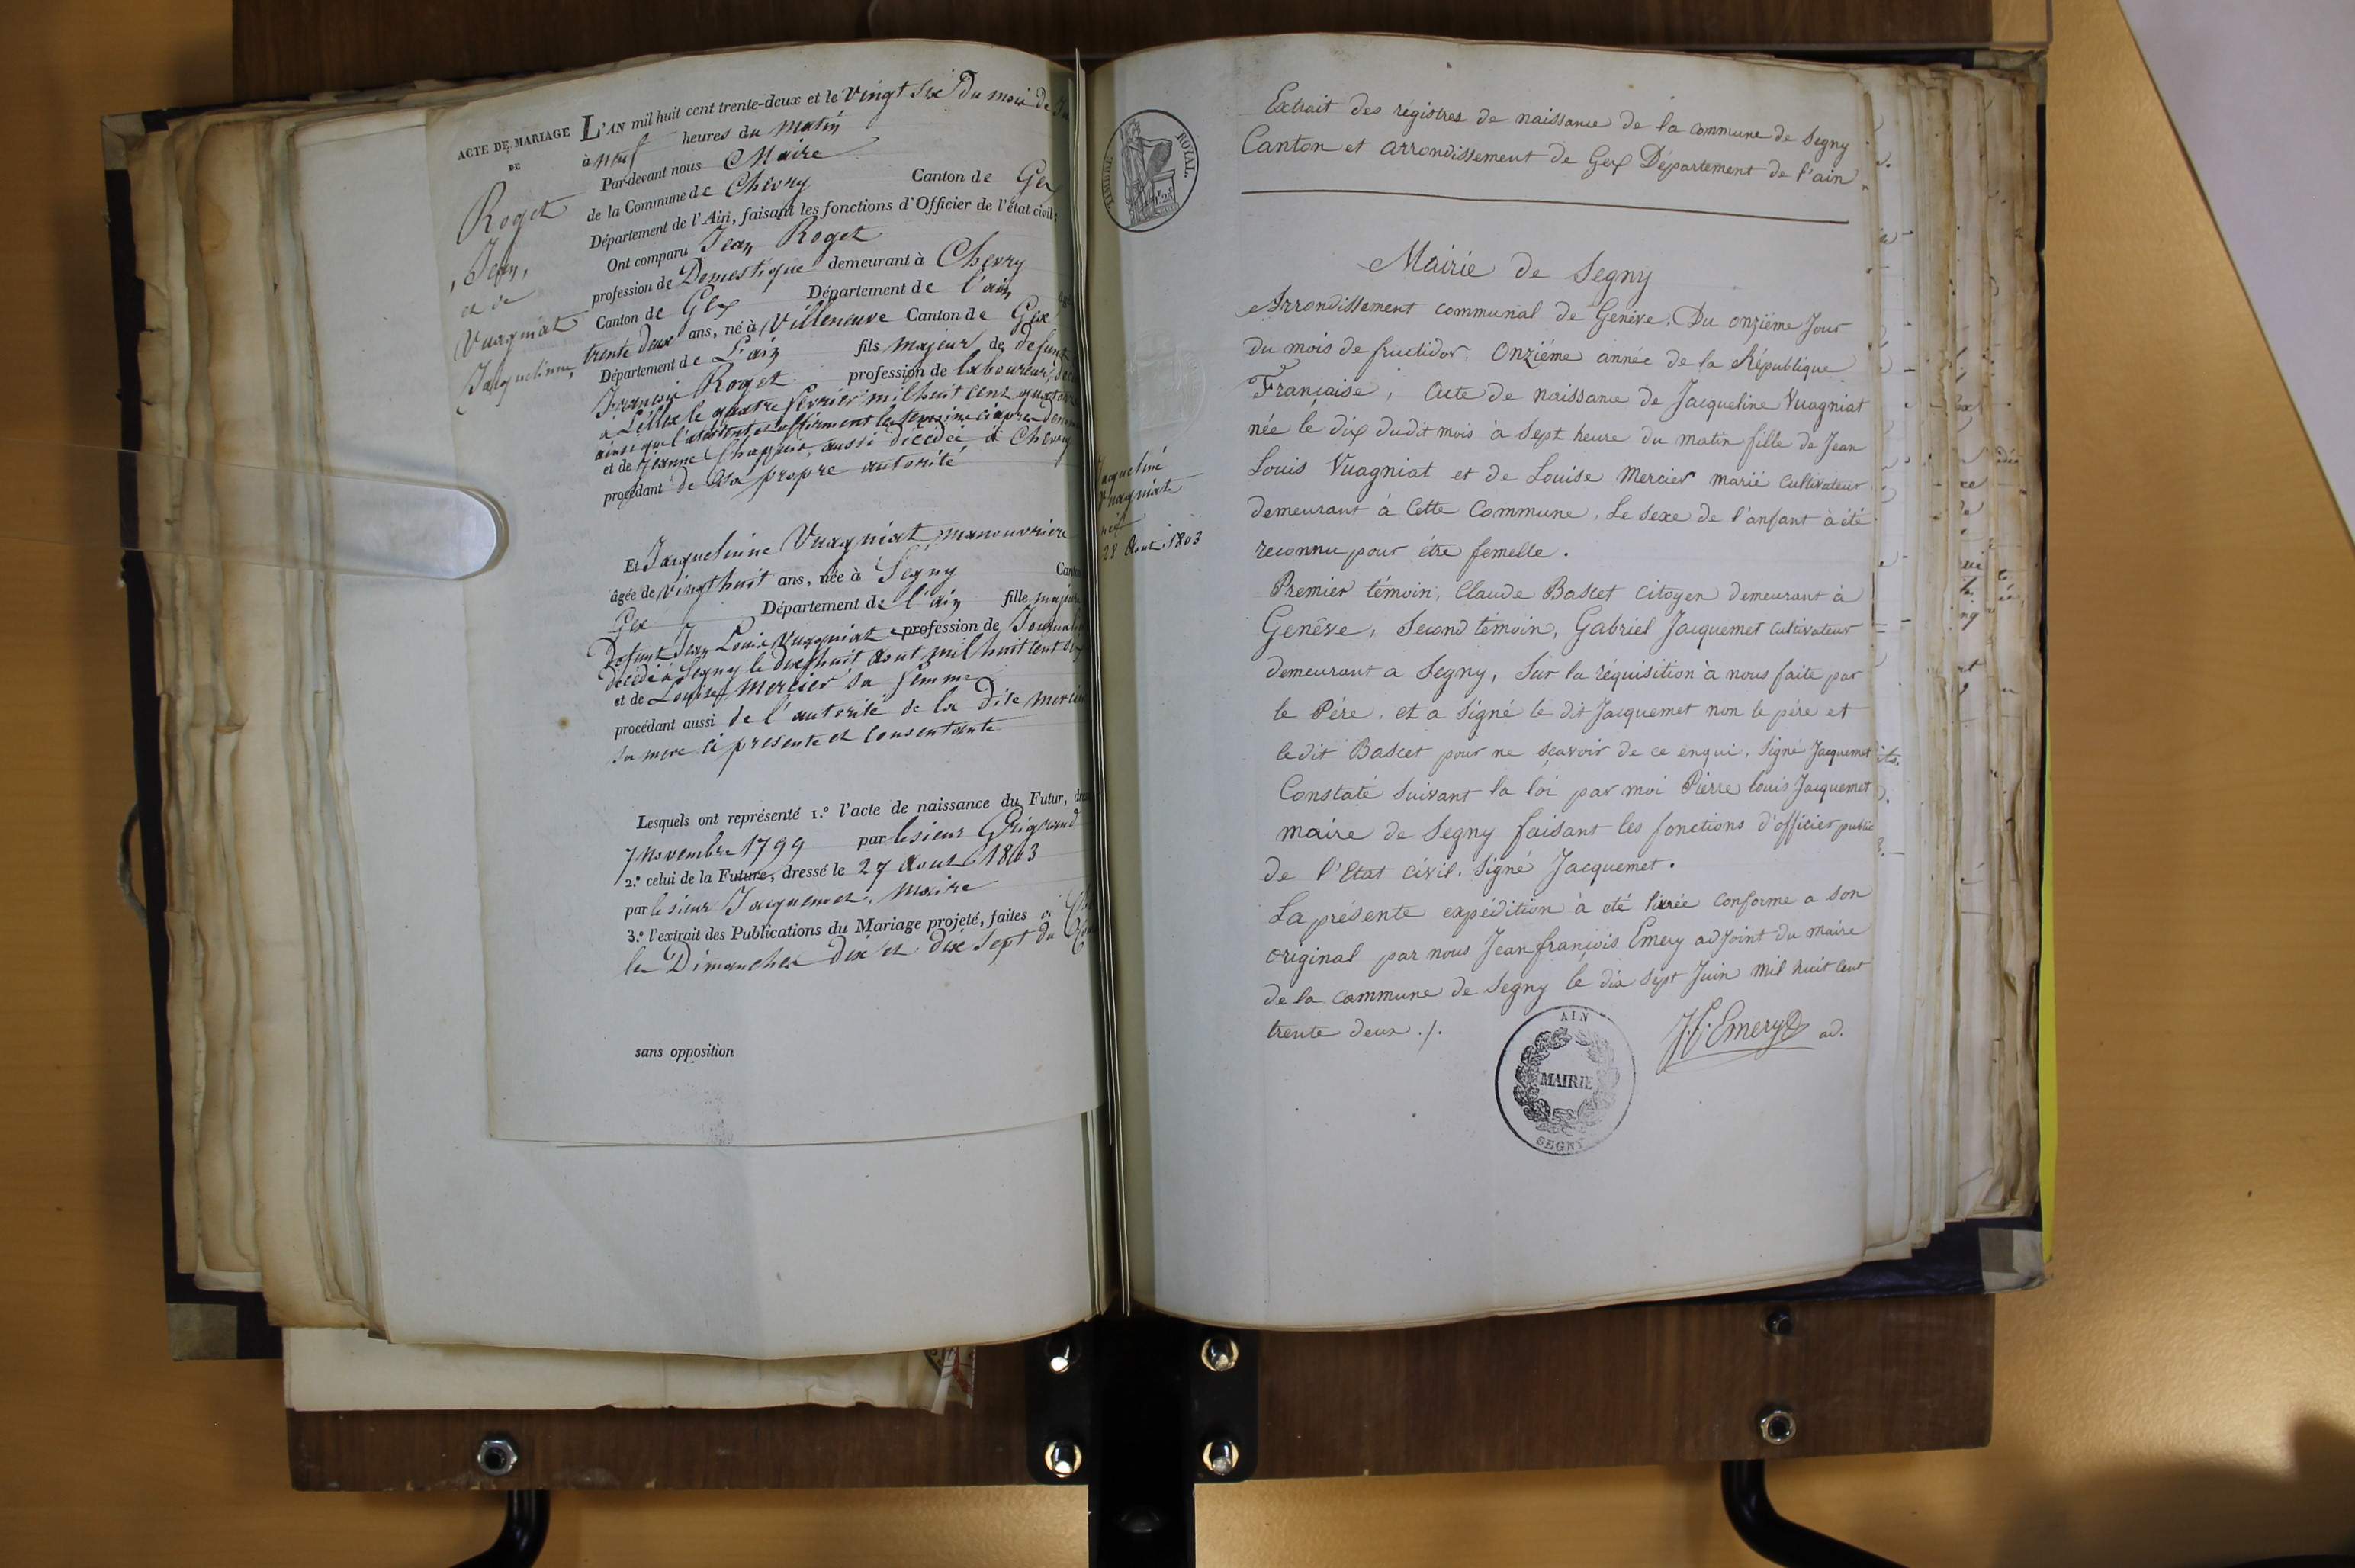 ACTE DE MARIAGE
DE
Roget
Jean,
et de
Vuagniat
Jaquelinne,
L'AN mil huit cent trente-deux et le Vingt Six Du mois de
à neuf heures du matin
Par-devant nous Maire
de la Commune de Chevry Canton de Gex
Département de l'Ain, faisant les fonctions d'Officier de l'état civil;
Ont comparu Jean Roget
profession de Domestique demeurant à Chevry
Canton de Gex Département de l'ain
trente deux ans, né à Villeneuve Canton de Gex
Département de L'ain fils majeur de defunt
François Roget profession de laboureur,
a le quatre fevrier mil huit cent
ainsi que l'attestent et affirment les témoins ci après
et de Jeanne Chappuis, aussi décédée à Chevry
procédant de sa propre autorité
Et Jaquelinne Vuagniat manouvriere
âgée de vingt huit ans, née à Segny
Gex Département de l'ain fille majeure
Defunt Jean Louis Vuagniat profession de
décédé à Segny le dix huit Aout mil huit cent
et de Louise Mercier sa femme
procédant aussi de l'autorité de la dite
sa mere ci presente et consentante
Lesquels ont représenté 1.º l'acte de naissance du Futur,
7 Novembre 1799 par le sieur
2.º celui de la Future, dressé le 27 Aout 1803
par le sieur Jacquemet, Maire
3.º l'extrait des Publications du Mariage projeté, faites à
les Dimanches dix et dix sept du
sans opposition
TIMBRE ROYAL.
Jaqueline
Vuagniat
28 Aout 1803
Extrait des régistres de naissance de la commune de Segny
Canton et arrondissement de Gex Département de l'ain.
Mairie de Segny
Arrondissement communal de Genève. Du onzième Jour
du mois de fructidor. Onziéme année de la République
Française, Acte de naissance de Jacqueline Vuagniat
née le dix dudit mois à Sept heure du matin fille de Jean
Louis Vuagniat et de Louise Mercier marié Cultivateur
demeurant à Cette Commune. Le sexe de l'anfant à été
reconnu pour étre femelle.
Premier témoin, Claude Bastet Citoyen demeurant à
Genêve, Second témoin, Gabriel Jacquemet Cultivateur
demeurant a Segny, Sur la réquisition à nous faite par
le Pére. et a Signé le dit Jacquemet non le pére et
ledit Bastet pour ne sçavoir de ce enqui. Signé Jacquemet
Constaté Suivant la loi par moi Pierre louis Jacquemet
maire de Segny faisant les fonctions d'officier public
de l'Etat civil. Signé Jacquemet.
La présente expédition à eté livrée Conforme a Son
original par nous Jean françois Emery adjoint du maire
de la commune de Segny le dix Sept Juin mil huit cent
trente deux ./.
J. f. Emery ad.
AIN
MAIRIE
SEGNY